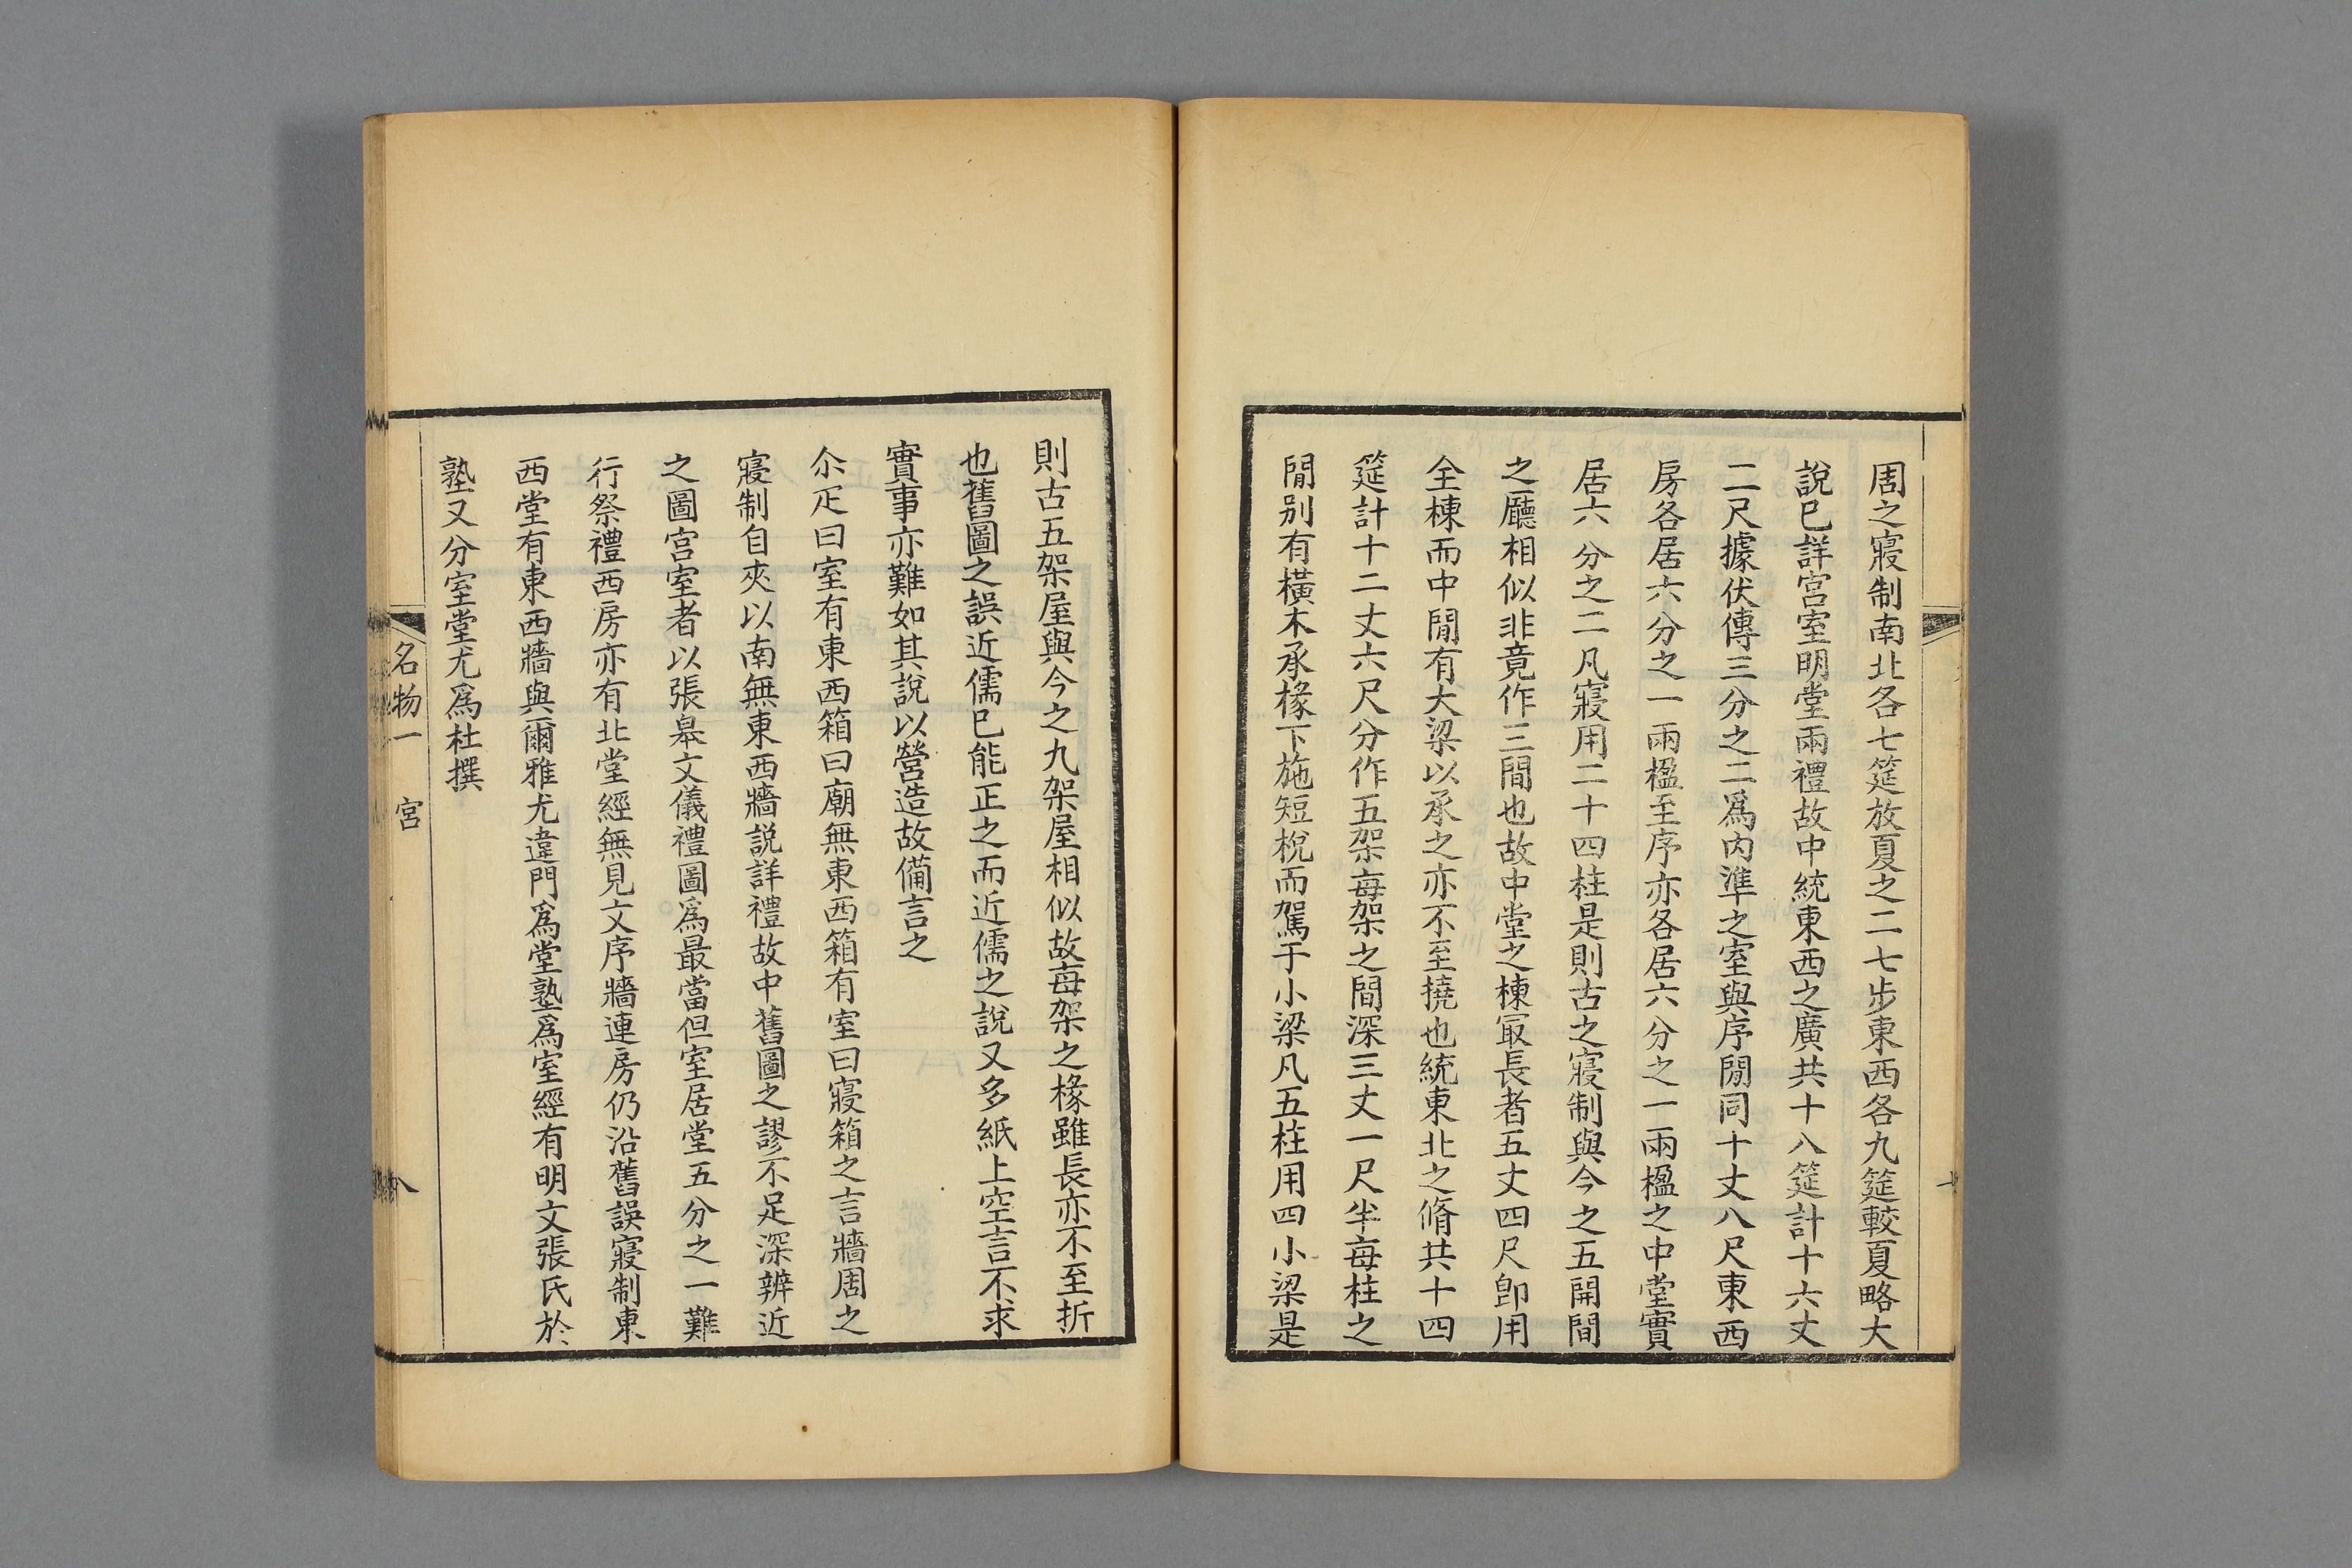 周之寢制南北各七筵放夏之二七步東西各九筵較夏略大
說已詳宮室明堂兩禮故中統東西之廣共十八筵計十六丈
二尺據伏傳三分之二爲內準之室與序閒同十丈八尺東西
房各居六分之一兩楹至序亦各居六分之一兩楹之中堂實
居六分之二凡寢用二十四柱是則古之寢制與今之五開間
之廳相似非竟作三間也故中堂之棟冣長者五丈四尺卽用
全棟而中閒有大梁以承之亦不至撓也統東北之脩共十四
筵計十二丈六尺分作五架每架之間深三丈一尺半每柱之
閒别有橫木承椽下施短梲而駕于小梁凡五柱用四小梁是
則古五架屋與今之九架屋相似故每架之椽雖長亦不至折
也舊圖之誤近儒已能正之而近儒之說又多紙上空言不求
實事亦難如其說以營造故備言之
尒疋曰室有東西箱曰廟無東西箱有室曰寢箱之言牆周之
寢制自夾以南無東西牆説詳禮故中舊圖之謬不足深辨近
之圖宮室者以張皋文儀禮圖爲最當但室居堂五分之一難
行祭禮西房亦有北堂經無見文序牆連房仍沿舊誤寢制東
西堂有東西牆與爾雅尤違門爲堂塾爲室經有明文張氏於
塾又分室堂尤爲杜撰
名物一 宮
八